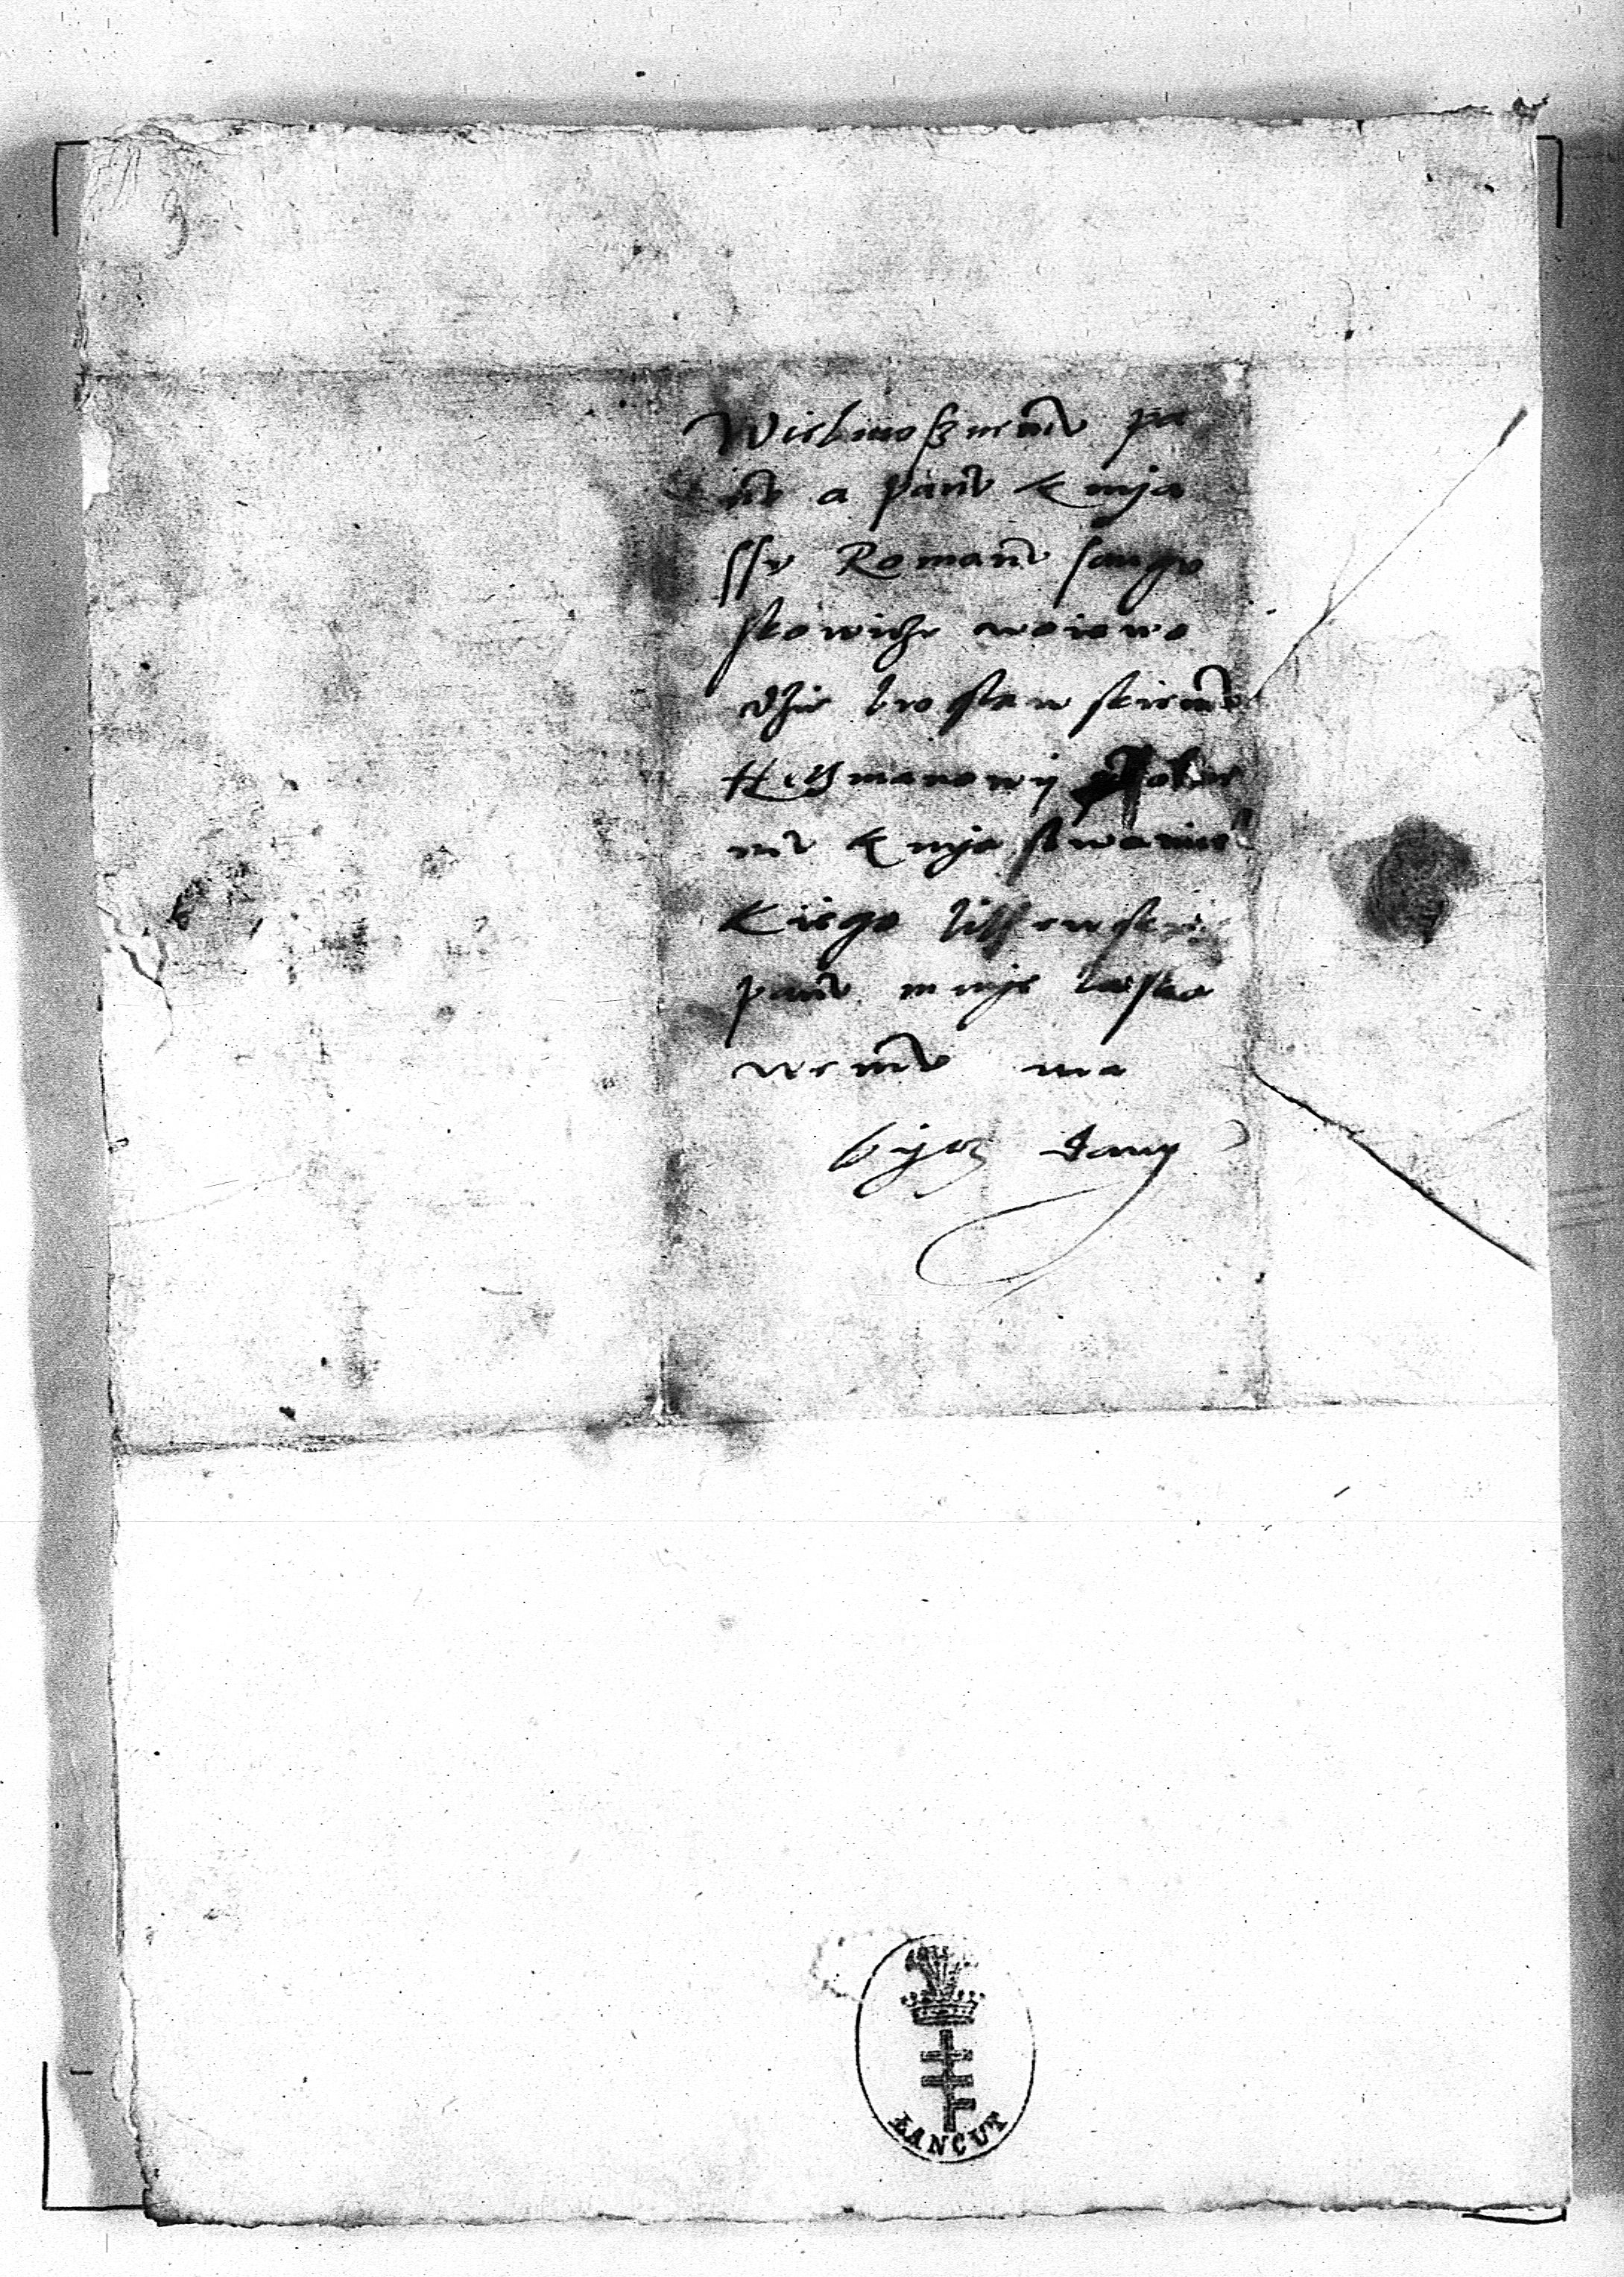 Wielmoznemu pa
nu a panu knija
ssu Romanu sangu
skowicze woiewo
dzie braslawskiemu
Hetmanowij polne
mu knijastwa wiel
kiego litewskie
panu mnije laska
wemu ma
bijcz dany
ŁAŃCUT